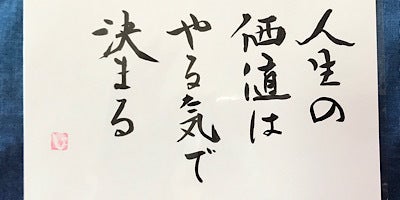 人生の
価値は
やる気で
決まる